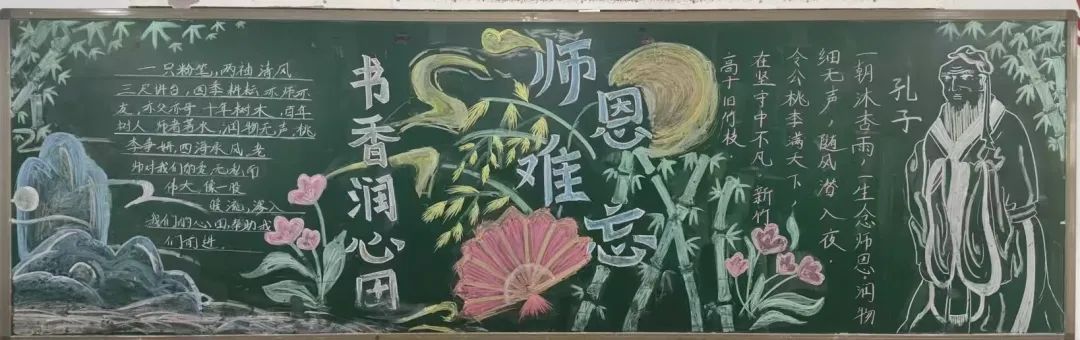 一只粉笔，两袖清风
三尺讲台，四季耕耘亦师亦
友，亦父亦母 十年树木，百年
树人 师者若水，润物无声，桃
李争妍，四海承风，老
师对我们的爱，无私而
伟大，像一股
暖流，渗入
我们的心田帮助我
们前进
书香润心田
师恩难忘
一朝沐杏雨，一生念师恩，润物
细无声，随风潜入夜。
令公桃李满天下，
在坚守中不凡，新竹
高于旧竹枝。
孔子